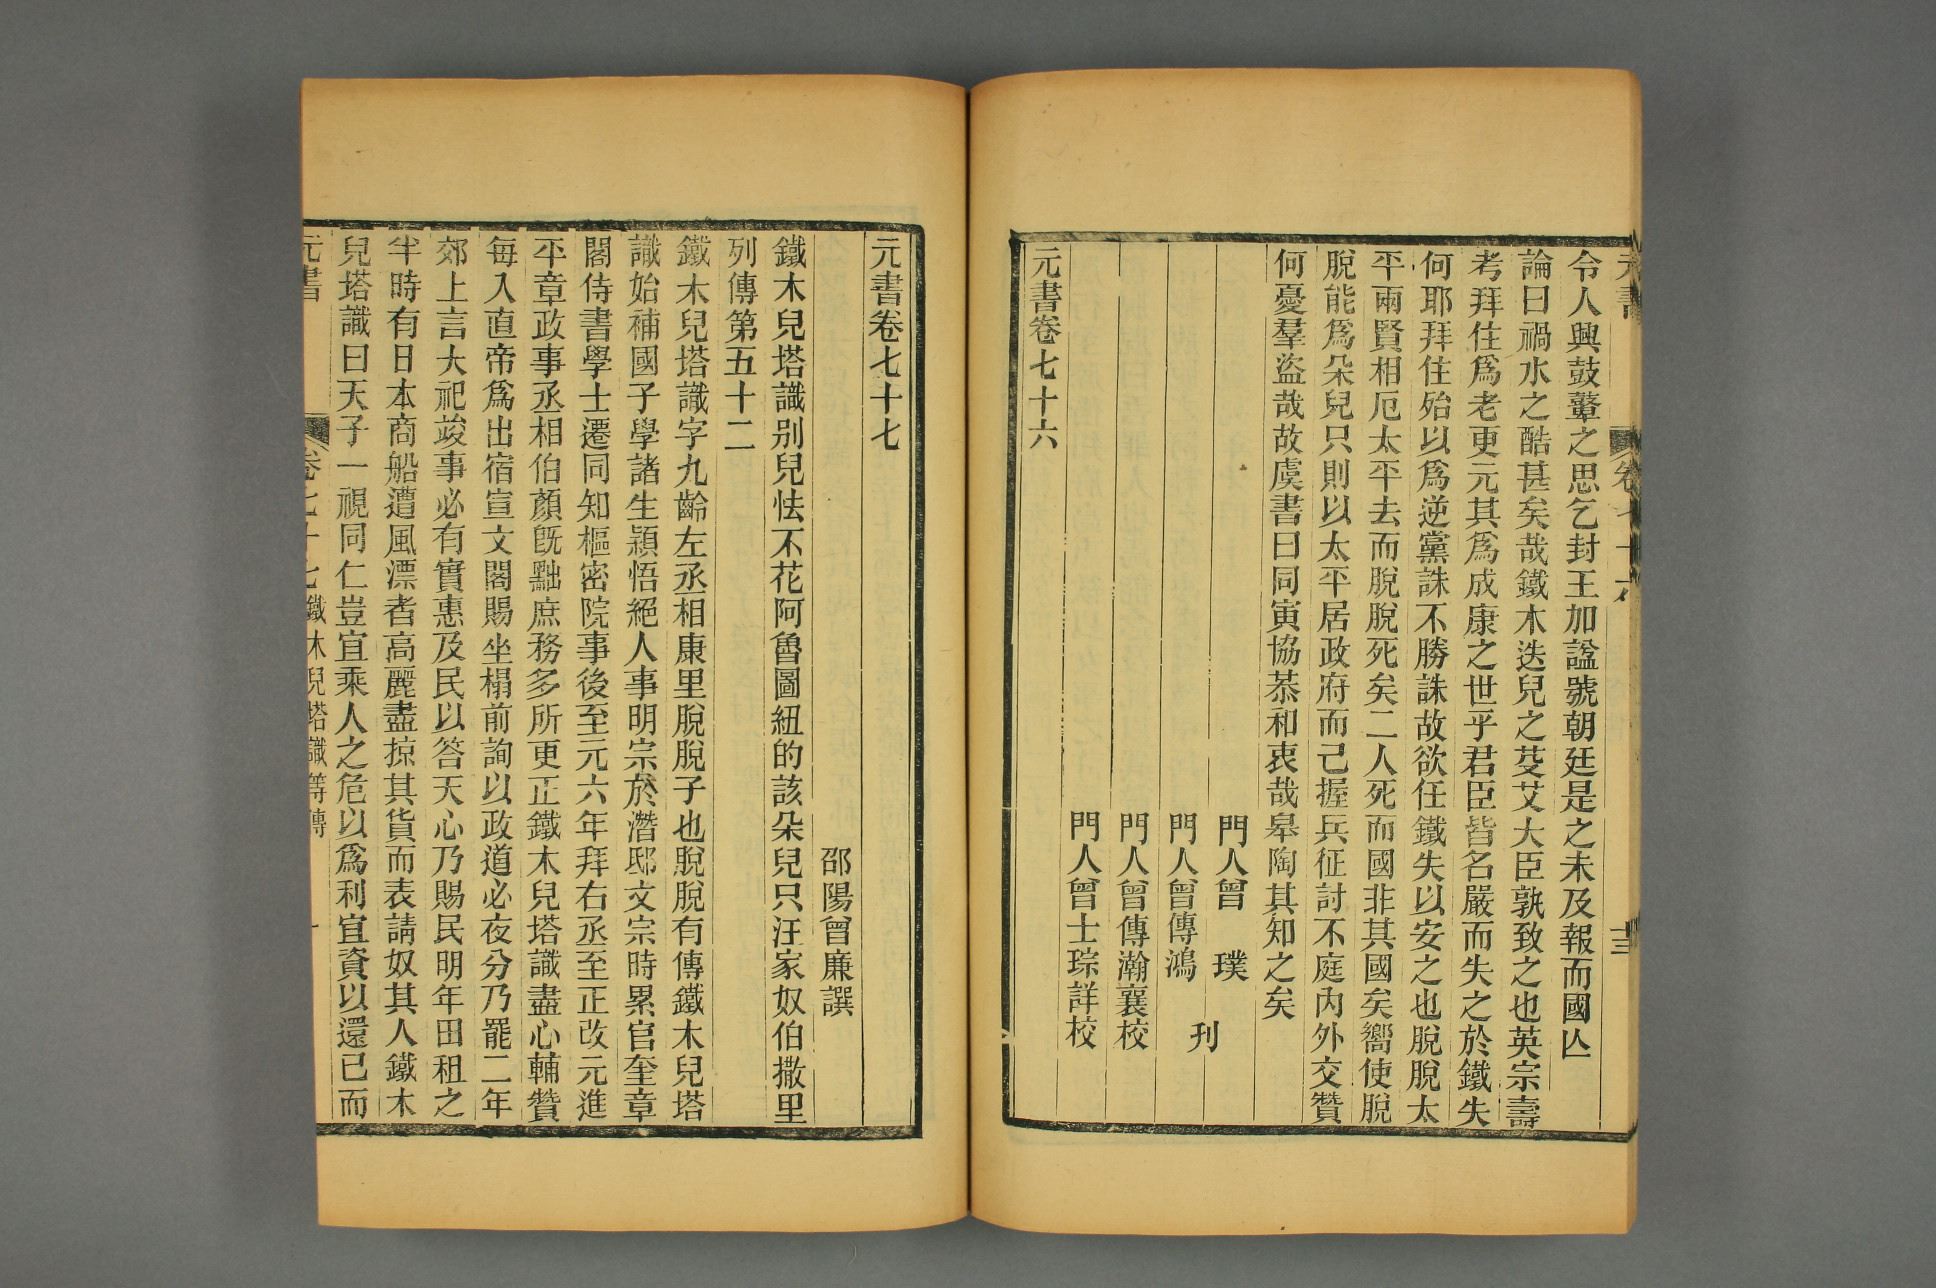 令人興鼓鼙之思乞封王加諡號朝廷是之未及報而國亾
論曰禍水之酷甚矣哉鐵木迭兒之芟艾大臣孰致之也英宗壽
考拜住爲老更元其爲成康之世乎君臣皆名嚴而失之於鐵失
何耶拜住殆以爲逆黨誅不勝誅故欲任鐵失以安之也脫脫太
平兩賢相厄太平去而脫脫死矣二人死而國非其國矣嚮使脫
脫能爲朵兒只則以太平居政府而己握兵征討不庭內外交贊
何憂羣盜哉故虞書曰同寅協恭和衷哉皋陶其知之矣
門人曾 璞
刊
門人曾傳鴻
門人曾傳瀚襄校
門人曾士琮詳校
元書卷七十六
元書卷七十七
邵陽曾廉譔
鐵木兒塔識別兒怯不花阿魯圖紐的該朵兒只汪家奴伯撒里
列傳第五十二
鐵木兒塔識字九齡左丞相康里脫脫子也脫脫有傳鐵木兒塔
識始補國子學諸生穎悟絕人事明宗於潛邸文宗時累官奎章
閣侍書學士遷同知樞密院事後至元六年拜右丞至正改元進
平章政事丞相伯顏旣黜庶務多所更正鐵木兒塔識盡心輔贊
每入直帝爲出宿宣文閣賜坐榻前詢以政道必夜分乃罷二年
郊上言大祀竣事必有實惠及民以答天心乃賜民明年田租之
半時有日本商船遭風漂者高麗盡掠其貨而表請奴其人鐵木
兒塔識曰天子一視同仁豈宜乘人之危以爲利宜資以還已而
元書 卷七十七 鐵木兒塔識等傳 一